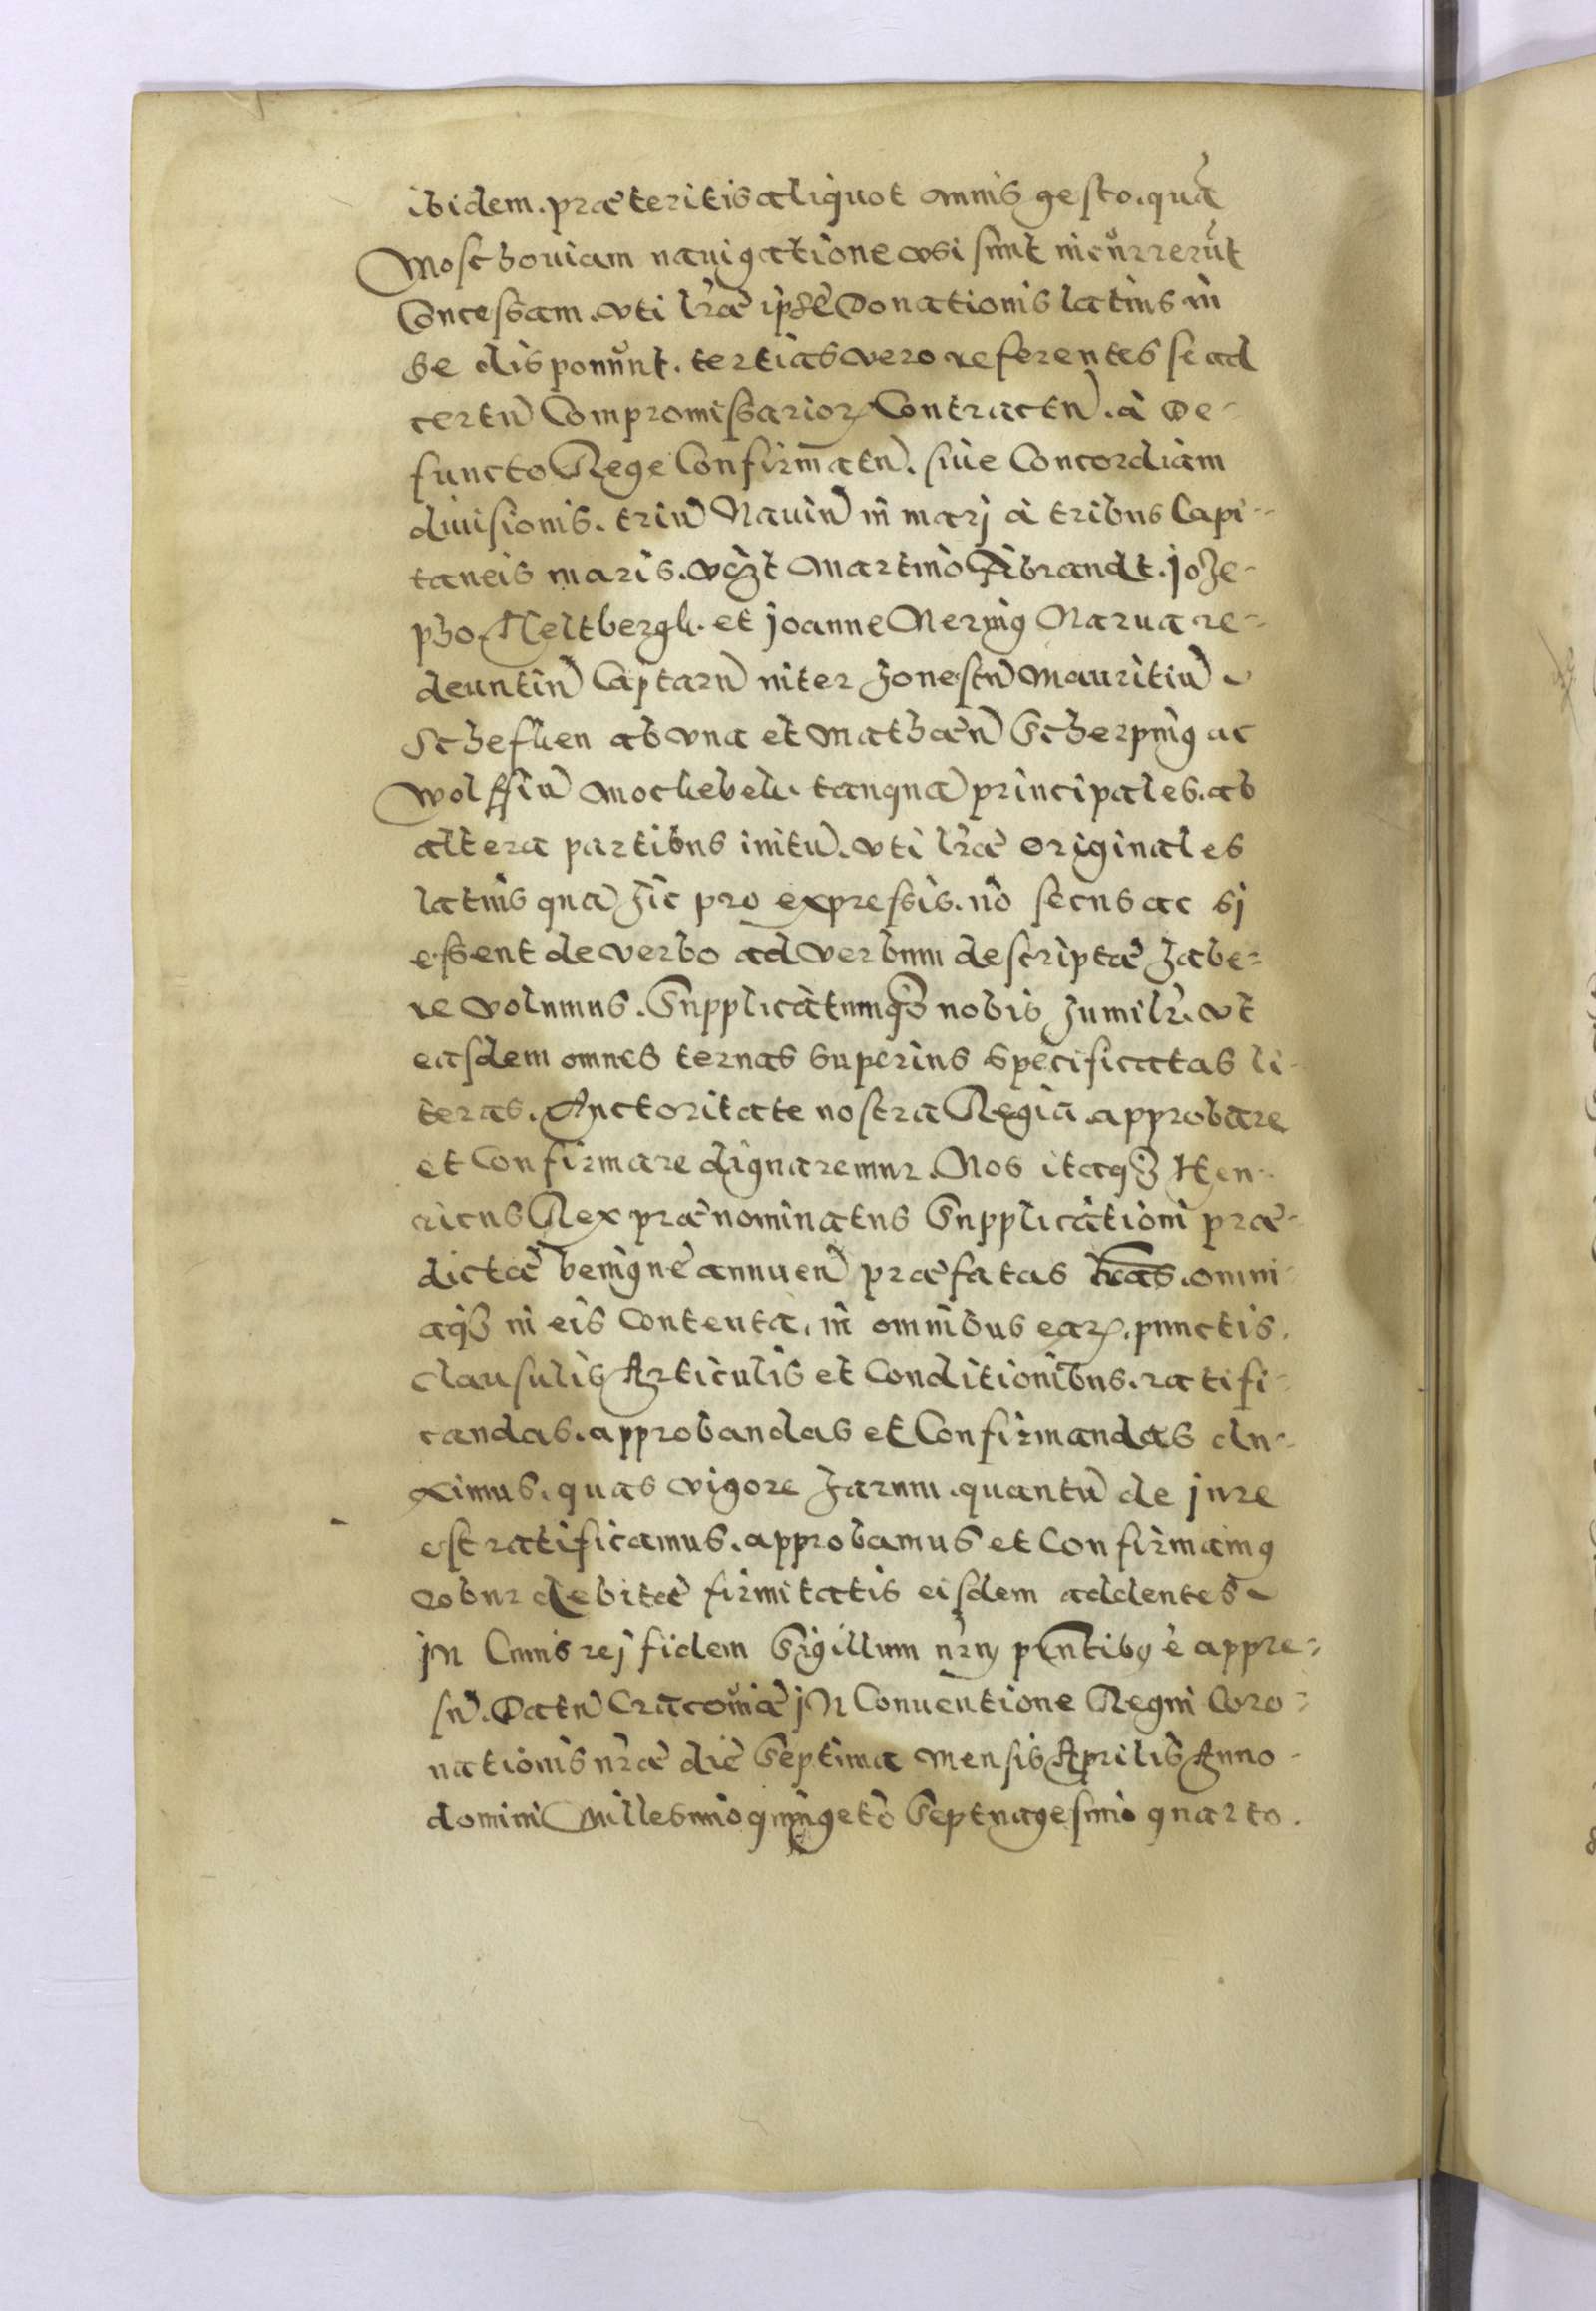 ibidem. præteritis aliquot annis gesto. quā
Moschouiam nauigatione vsi sunt incurrerūt
Concessam. vti lræ ipsę Donationis latius in
se disponunt. tertias vero referentes se ad
certū Compromissarioꝝ Contractū. à De-
functo Rege Confirmatū. siue Concordiam
diuisionis. triū Nauiū in marj à tribus Capi-
taneis maris. vꝫt Martino Fibrandt. joʒe-
pho. Heltbergk. et joanne Mering Narua re-
deuntiū Captarū inter honestū Mauritiū
Schefken ab vna et Mathæū Scherping ac
Wolffiū Mockebek. tanquā principales. ab
altera partibus initū. vti lræ originales
latius quā hic pro expressis. nō secus ac sj
essent de verbo ad verbum descriptæ habe-
re volumus. Supplicatumqꝫ nobis humilr. vt
easdem omnes ternas superius specificatas li-
teras. Auctoritate nostra Regia approbare
et Confirmare dignaremur. Nos itaqꝫ Hen-
ricus Rex prænominatus Supplicationi præ-
dictæ benigne annuen̄ præfatas lr̄as. omni-
aqꝫ in eis Contenta, in omnibus earꝝ. punctis.
clausulis Articulis et Conditionibus. ratifi-
candas. approbandas et Confirmandas du-
ximus. quas vigore harum. quantū de jure
est ratificamus. approbamus et Confirmamꝯ
robur debitæ firmitatis eisdem addentes
jn Cuius rej fidem Sigillum nrm pn̄tibꝯ ē appre-
sū. Datū Cracouiæ jn Conuentione Regni Coro-
nationis nræ die Septima Mensis Aprilis Anno
domini Millesimo quingētō Septuagesimo quarto.